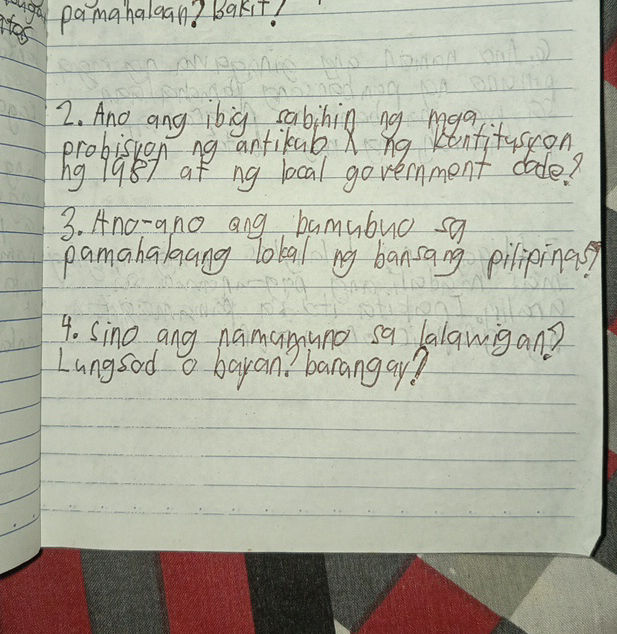 pamahalaan? Bakit?
2. Ano ang ibig sabihin ng mga
probisyon ng artikulo X ng kontitusyon
ng 1987 at ng local government code?
3. Ano-ano ang bumubuo sa
pamahalaang lokal ng bansang pilipinas?
4. Sino ang namumuno sa lalawigan?
Lungsod o bayan? barangay?